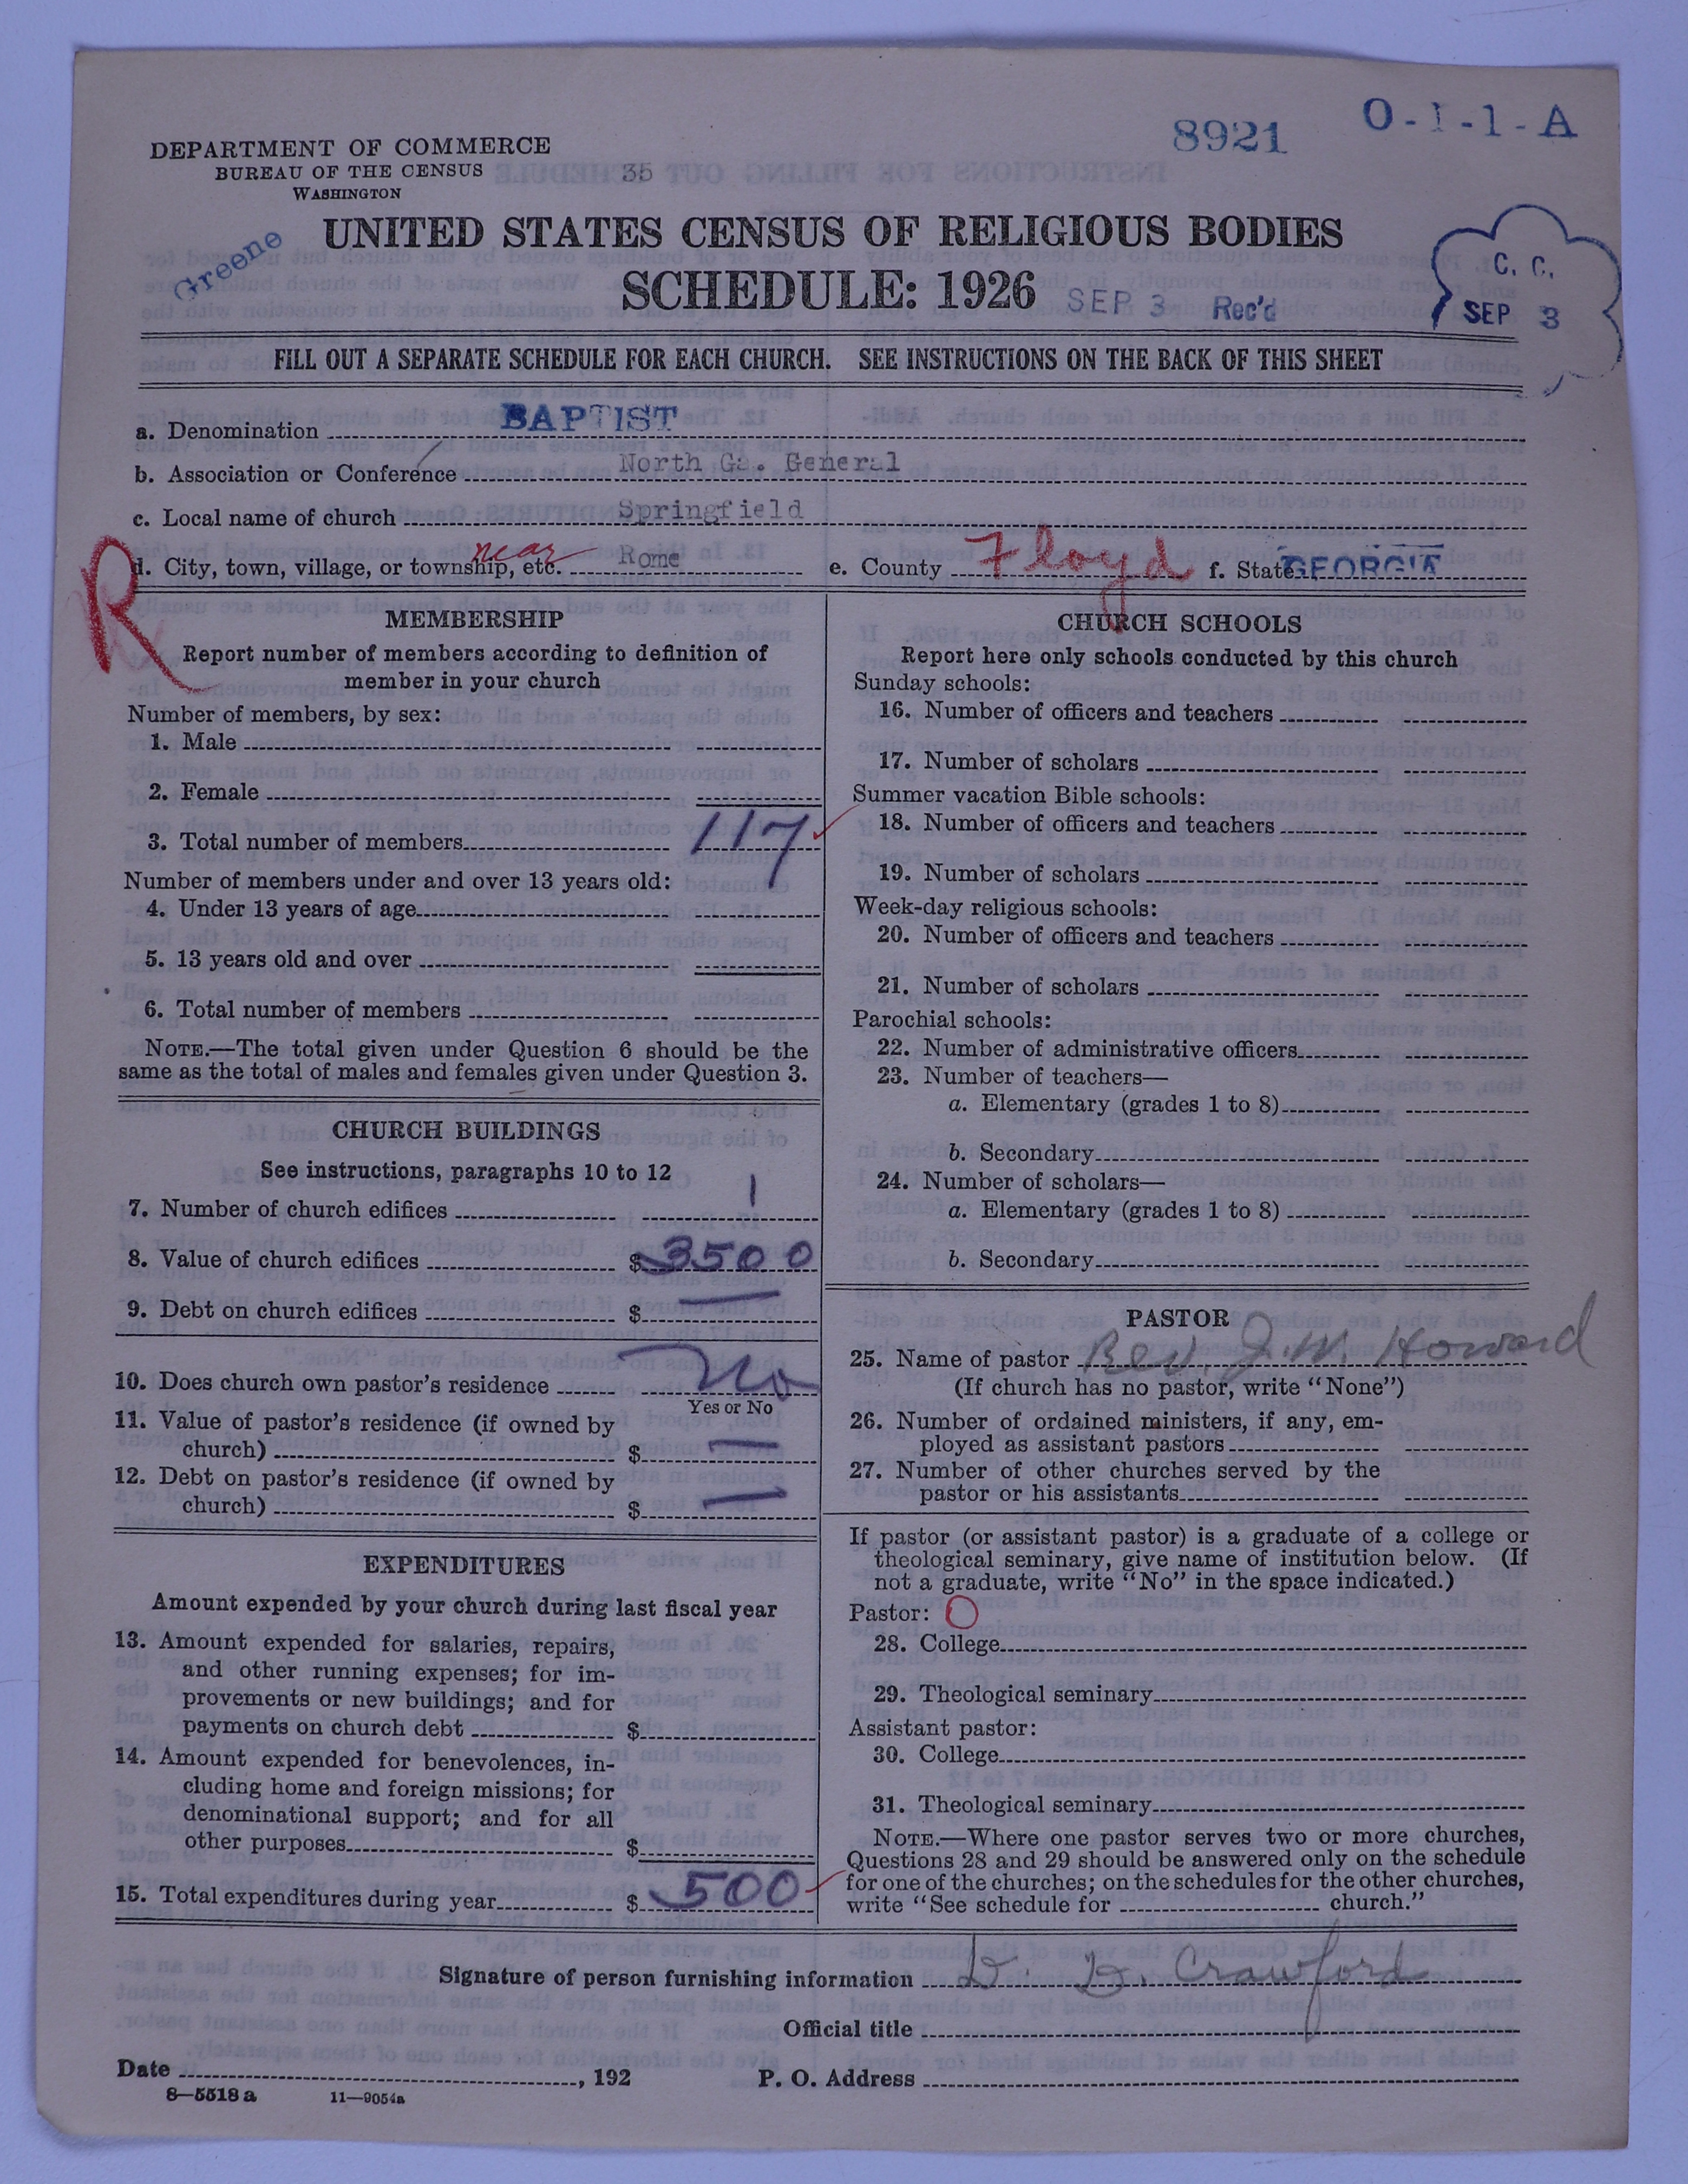 8921
O-1-1-A
DEPARTMENT OF COMMERCE
BUREAU OF THE CENSUS
35
WASHINGTON
Greene
UNITED STATES CENSUS OF RELIGIOUS BODIES
SCHEDULE: 1926
SEP 3 Rec'd
C. C.
SEP 3
FILL OUT A SEPARATE SCHEDULE FOR EACH CHURCH. SEE INSTRUCTIONS ON THE BACK OF THIS SHEET
a. Denomination BAPTIST
b. Association or Conference North Ga. General
c. Local name of church Springfield
R
d. City, town, village, or township, etc. near Rome e. County Floyd f. State GEORGIA
MEMBERSHIP
Report number of members according to definition of
member in your church
Number of members, by sex:
1. Male
2. Female
3. Total number of members 117
Number of members under and over 13 years old:
4. Under 13 years of age
5. 13 years old and over
6. Total number of members
NOTE.—The total given under Question 6 should be the
same as the total of males and females given under Question 3.
CHURCH BUILDINGS
See instructions, paragraphs 10 to 12
7. Number of church edifices 1
8. Value of church edifices $ 3500
9. Debt on church edifices $ —
10. Does church own pastor's residence No
Yes or No
11. Value of pastor's residence (if owned by
church) $ —
12. Debt on pastor's residence (if owned by
church) $ —
EXPENDITURES
Amount expended by your church during last fiscal year
13. Amount expended for salaries, repairs,
and other running expenses; for im-
provements or new buildings; and for
payments on church debt $
14. Amount expended for benevolences, in-
cluding home and foreign missions; for
denominational support; and for all
other purposes $
15. Total expenditures during year $ 500
CHURCH SCHOOLS
Report here only schools conducted by this church
Sunday schools:
16. Number of officers and teachers
17. Number of scholars
Summer vacation Bible schools:
18. Number of officers and teachers
19. Number of scholars
Week-day religious schools:
20. Number of officers and teachers
21. Number of scholars
Parochial schools:
22. Number of administrative officers
23. Number of teachers—
a. Elementary (grades 1 to 8)
b. Secondary
24. Number of scholars—
a. Elementary (grades 1 to 8)
b. Secondary
PASTOR
25. Name of pastor Rev. J. M. Howard
(If church has no pastor, write "None")
26. Number of ordained ministers, if any, em-
ployed as assistant pastors
27. Number of other churches served by the
pastor or his assistants
If pastor (or assistant pastor) is a graduate of a college or
theological seminary, give name of institution below. (If
not a graduate, write "No" in the space indicated.)
Pastor: O
28. College
29. Theological seminary
Assistant pastor:
30. College
31. Theological seminary
NOTE.—Where one pastor serves two or more churches,
Questions 28 and 29 should be answered only on the schedule
for one of the churches; on the schedules for the other churches,
write "See schedule for church."
Signature of person furnishing information D. D. Crawford
Official title
Date , 192
P. O. Address
8—5518 a 11—9054a